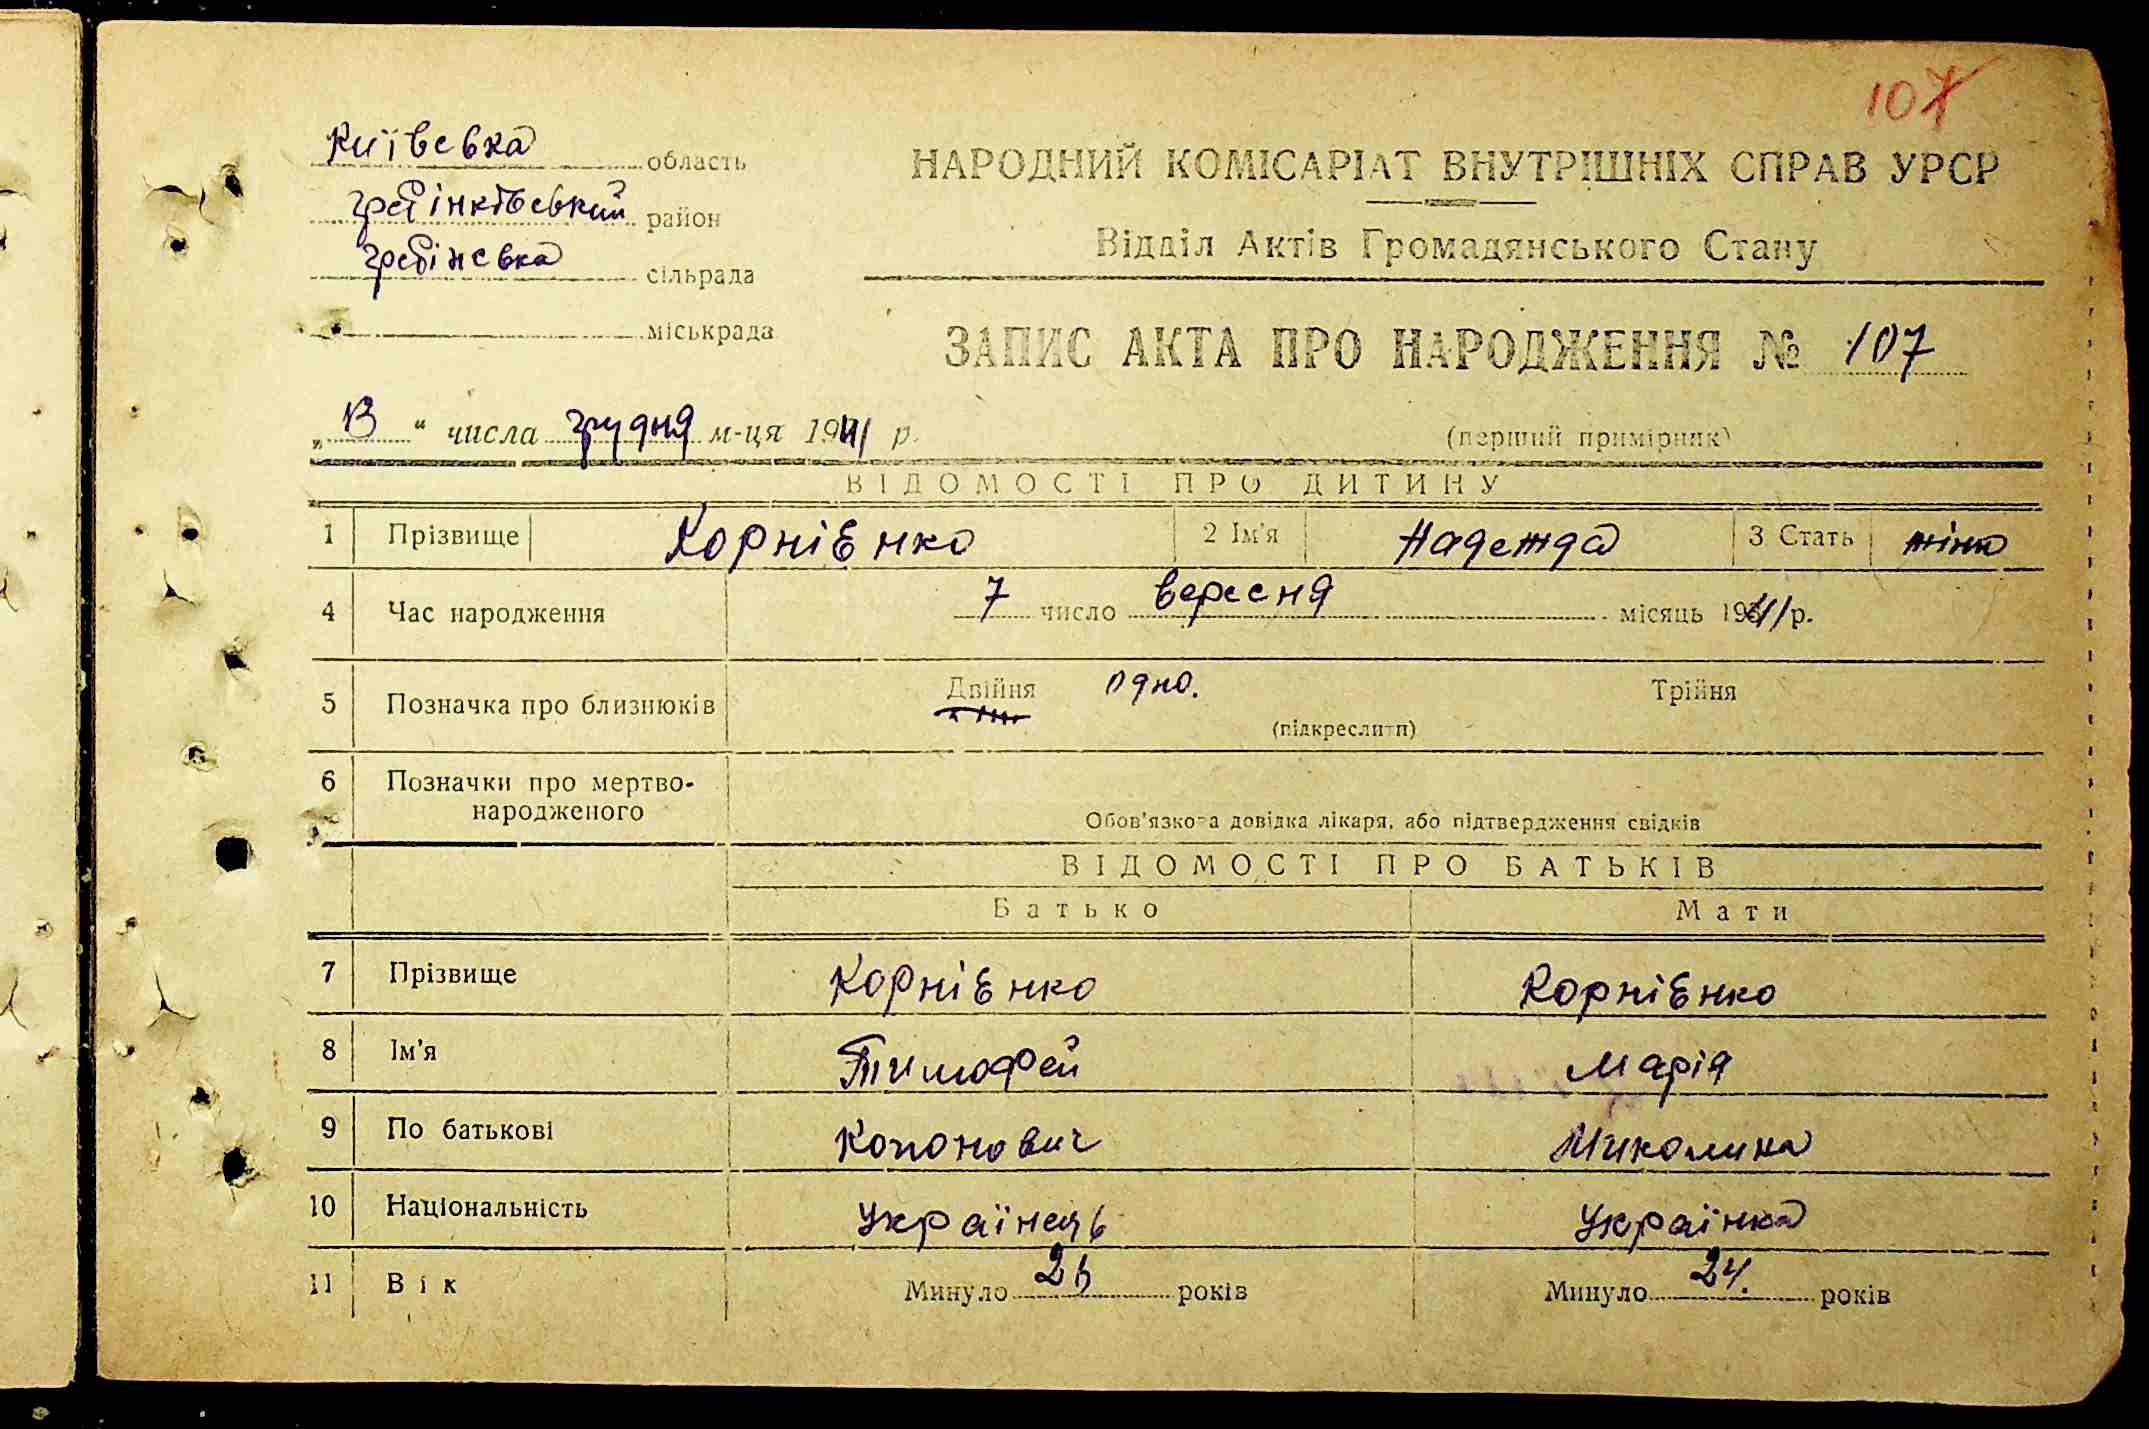 107
Київська область
НАРОДНИЙ КОМІСАРІАТ ВНУТРІШНІХ СПРАВ УРСР
гребінківський район
Відділ Актів Громадянського Стану
гребінська сільрада
міськрада
ЗАПИС АКТА ПРО НАРОДЖЕННЯ № 107
„13“ числа грудня м-ця 1941 р.
(перший примірник)
ВІДОМОСТІ ПРО ДИТИНУ
1 Прізвище Корнієнко 2 Ім'я Надежда 3 Стать жіно
4 Час народження 7 число вересня місяць 1941 р.
5 Позначка про близнюків Двійня одно. Трійня
(підкреслити)
6 Позначки про мертво-
народженого
Обов'язкова довідка лікаря, або підтвердження свідків
ВІДОМОСТІ ПРО БАТЬКІВ
Батько Мати
7 Прізвище Корнієнко Корнієнко
8 Ім'я Тимофей Марія
9 По батькові Копонович Миколина
10 Національність Українець Українка
11 Вік Минуло років Минуло 24. років